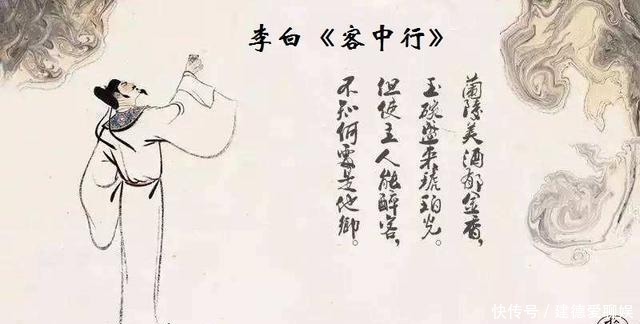 李白《客中行》
蘭陵美酒郁金香，
玉碗盛来琥珀光。
但使主人能醉客，
不知何處是他鄉。
快传号/建信爱聊娱